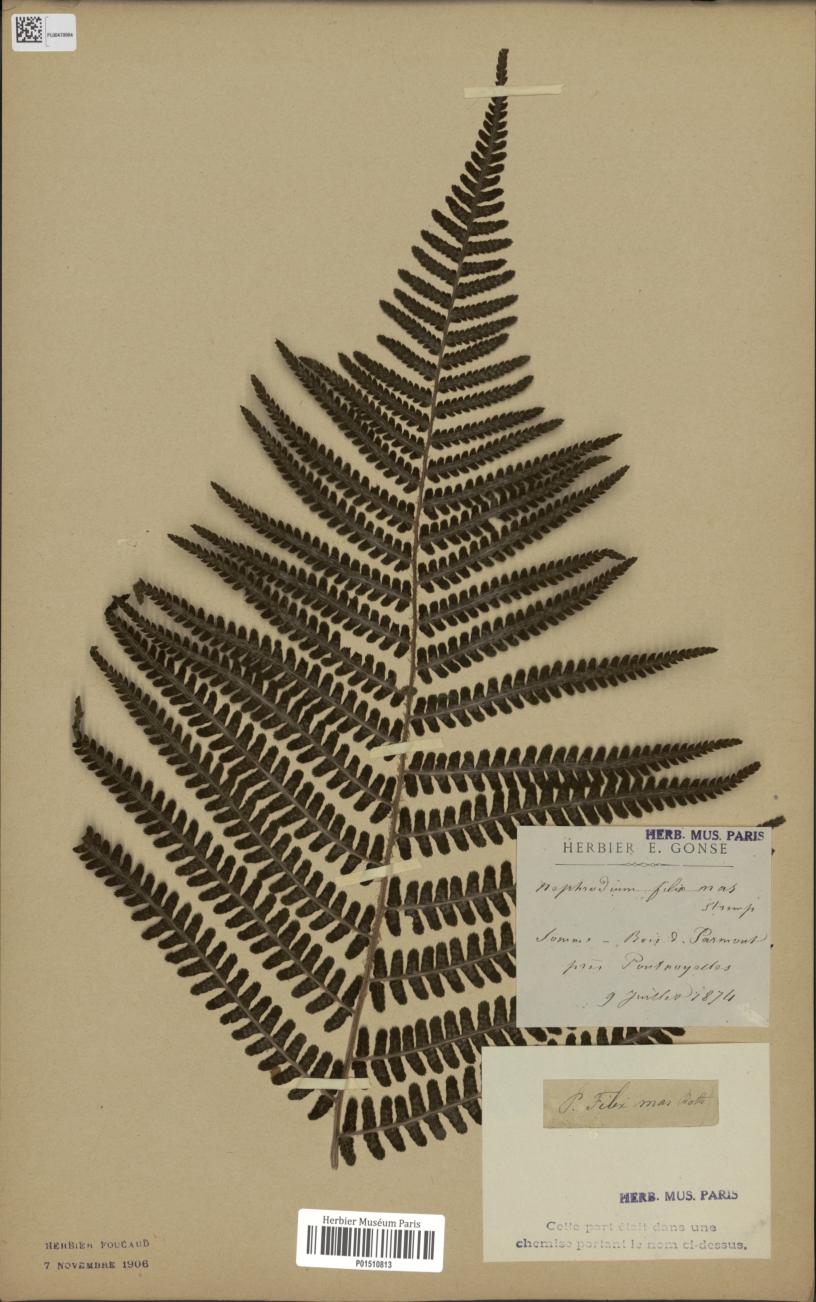 HERB. MUS. PARIS
HERBIER E. GONSE
Nephrodium filix mas
Stremp
Somme - Bois d. Parmont,
près Pontnoyelles
9 Juillet 1874
P. Filix mas Roth
HERB. MUS. PARIS
Cette part était dans une
chemise portant le nom ci-dessus.
Herbier Muséum Paris
P01510813
HERBIER FOUCAUD
7 NOVEMBRE 1906